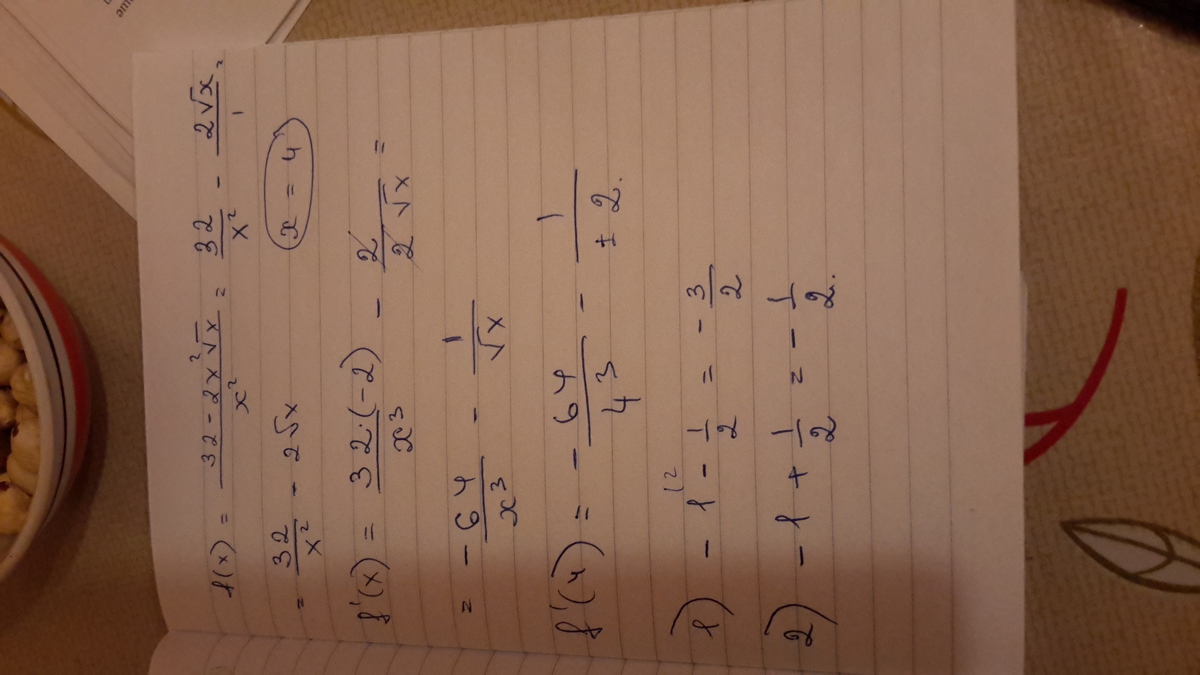 f(x) = (32 - 2x²√x)/x² = 32/x² - 2√x/1 =
= 32/x² - 2√x x = 4
f'(x) = 32·(-2)/x³ - 2/(2√x) =
= - 64/x³ - 1/√x
f'(4) = - 64/4³ - 1/(± 2).
1) - 1 - 1/2 = - 3/2
2) - 1 + 1/2 = - 1/2.